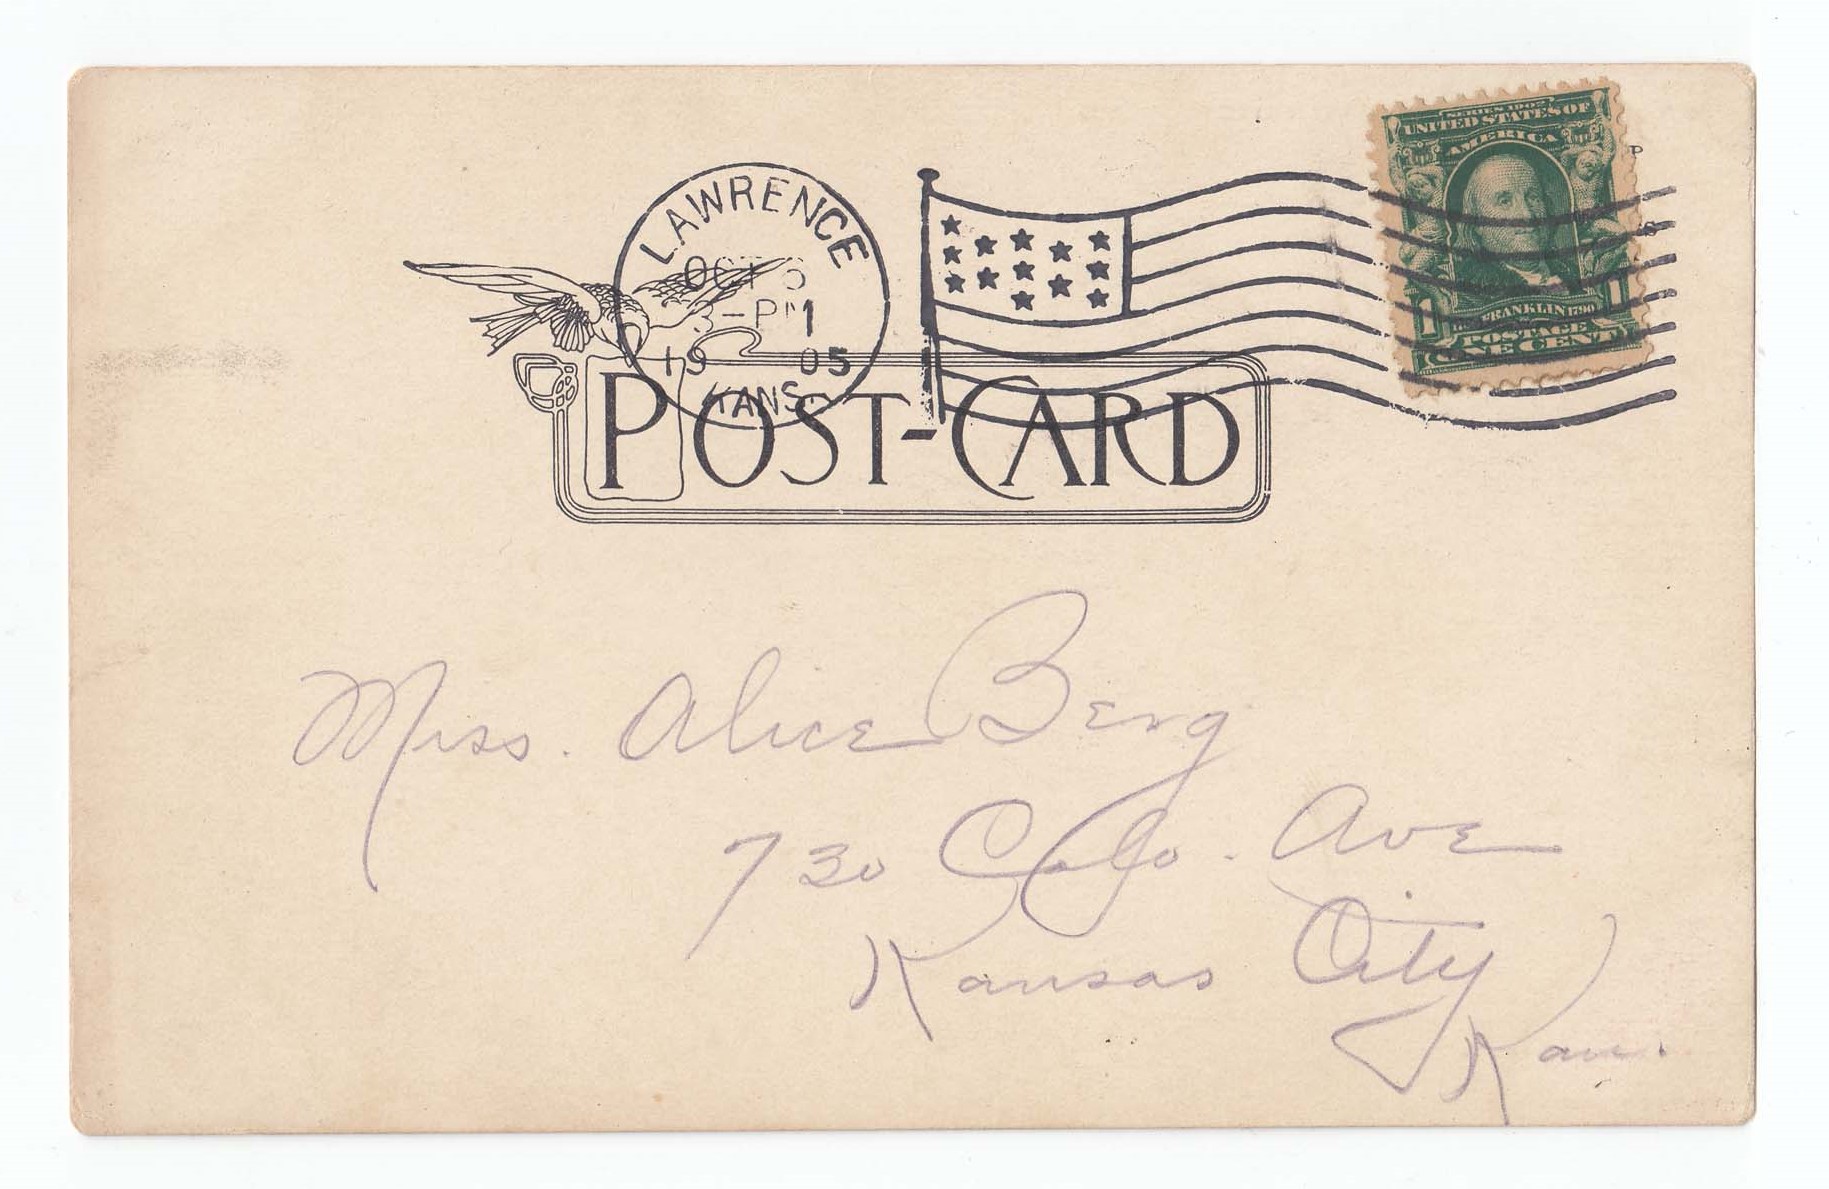 SERIES 1902
UNITED STATES OF
AMERICA
FRANKLIN 1790
1 1
POSTAGE
ONE CENT
LAWRENCE
OCT
3-PM
1905
KANS.
POST-CARD
Miss. Alice Berg
730 Colo. Ave
Kansas City
Kan.